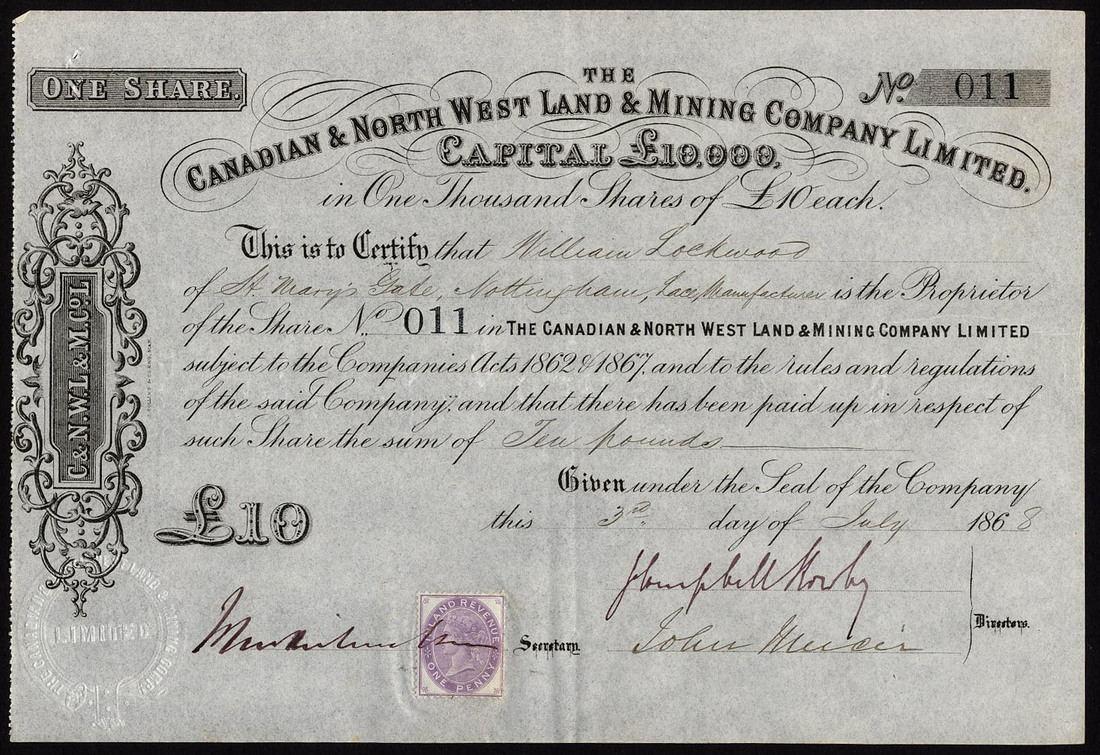 ONE SHARE.
No. 011
THE
CANADIAN & NORTH WEST LAND & MINING COMPANY LIMITED.
CAPITAL £10,000,
in One Thousand Shares of £10 each.
This is to Certify that William Lockwood
of St. Mary's Gate, Nottingham, Lace Manufacturer is the Proprietor
of the Share No. 011 in THE CANADIAN & NORTH WEST LAND & MINING COMPANY LIMITED
subject to the Companies Acts 1862 & 1867, and to the rules and regulations
of the said Company; and that there has been paid up in respect of
such Share the sum of Ten pounds
Given under the Seal of the Company
this 3rd day of July 1868
£10
C & N.W.L & M.Co.L
LIMITED
INLAND REVENUE
ONE PENNY
Secretary.
John Muir
Directors.